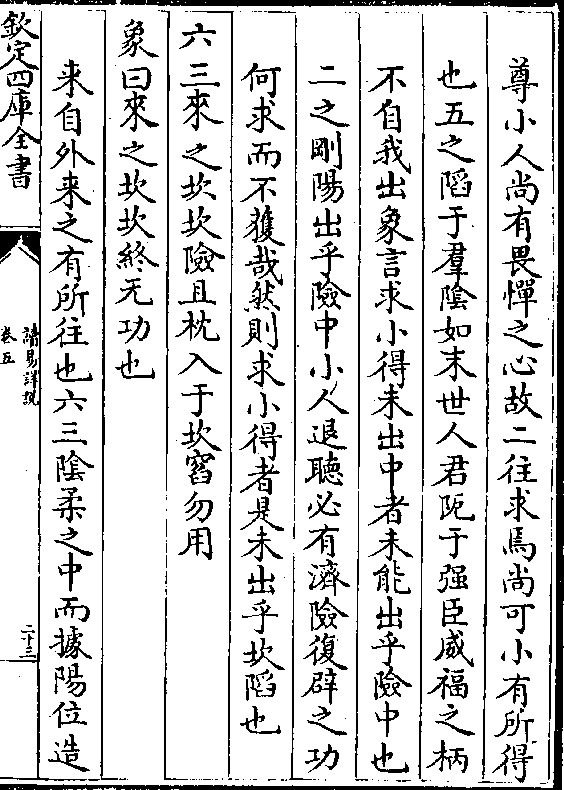 尊小人尚有畏憚之心故二往求焉尚可小有所得
也五之䧟于羣陰如末世人君阨于强臣威福之柄
不自我出象言求小得未出中者未能出乎險中也
二之剛陽出乎險中小人退聽必有濟險復辟之功
何求而不獲哉然則求小得者是未出乎坎䧟也
六三來之坎坎險且枕入于坎窞勿用
象曰來之坎坎終无功也
来自外来之有所往也六三陰柔之中而據陽位造
欽定四庫全書
讀易詳說
卷五
二十三